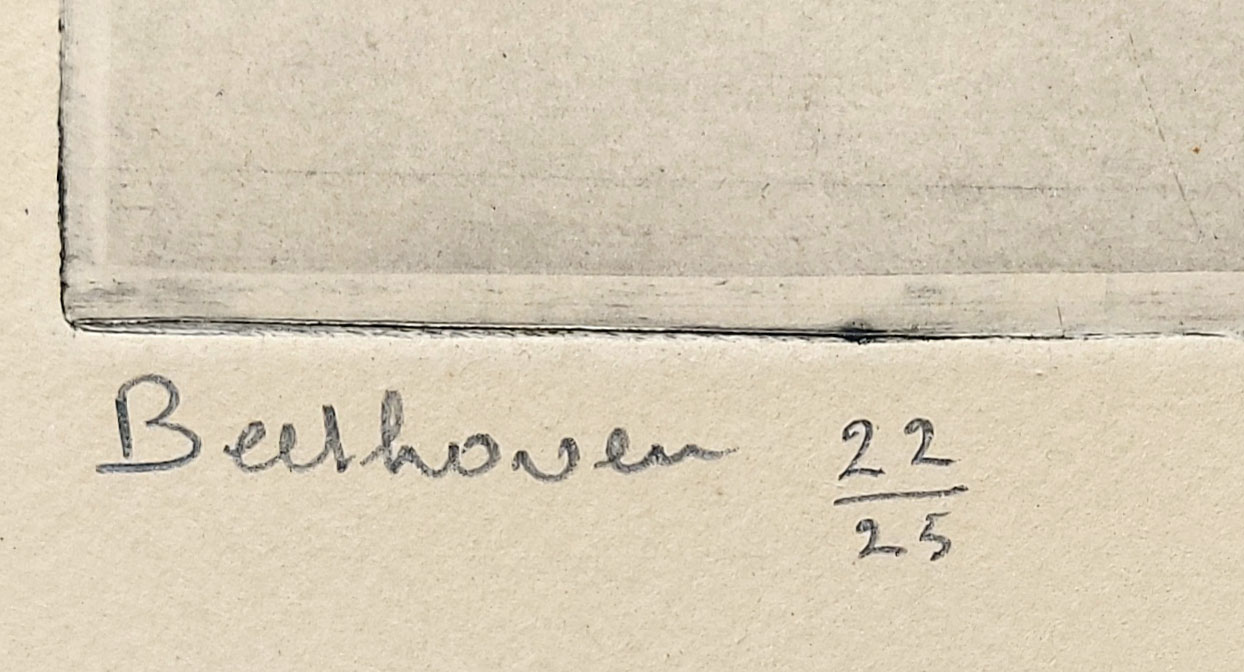 Beethoven 22/25